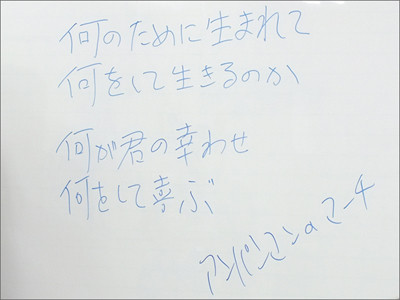 何のために生まれて
何をして生きるのか
何が君の幸わせ
何をして喜ぶ
アンパンマンのマーチ